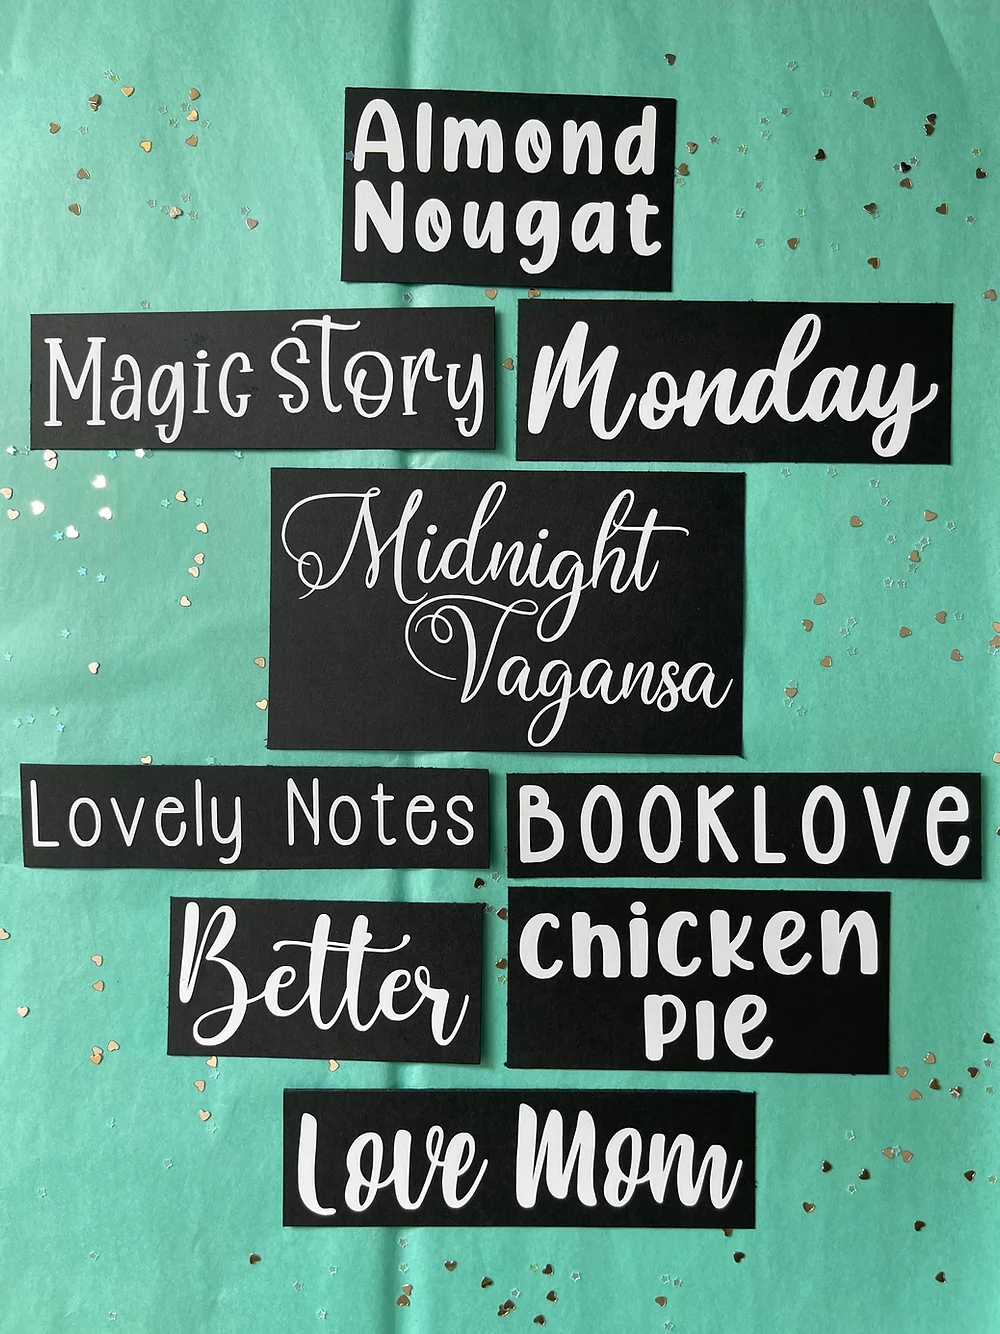 Almond
Nougat
Magic Story
Monday
Midnight
Vagansa
Lovely Notes
BOOKLOVe
Better
chicken
pie
Love Mom